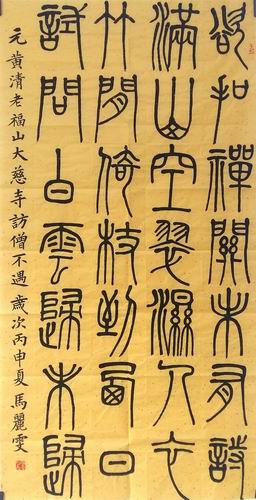 欲扣禪關未有詩
滿山空翠濕人衣
竹間倚杖到西日
試問白雲歸未歸
元黃清老福山大慈寺訪僧不遇 歲次丙申夏 馬麗雯